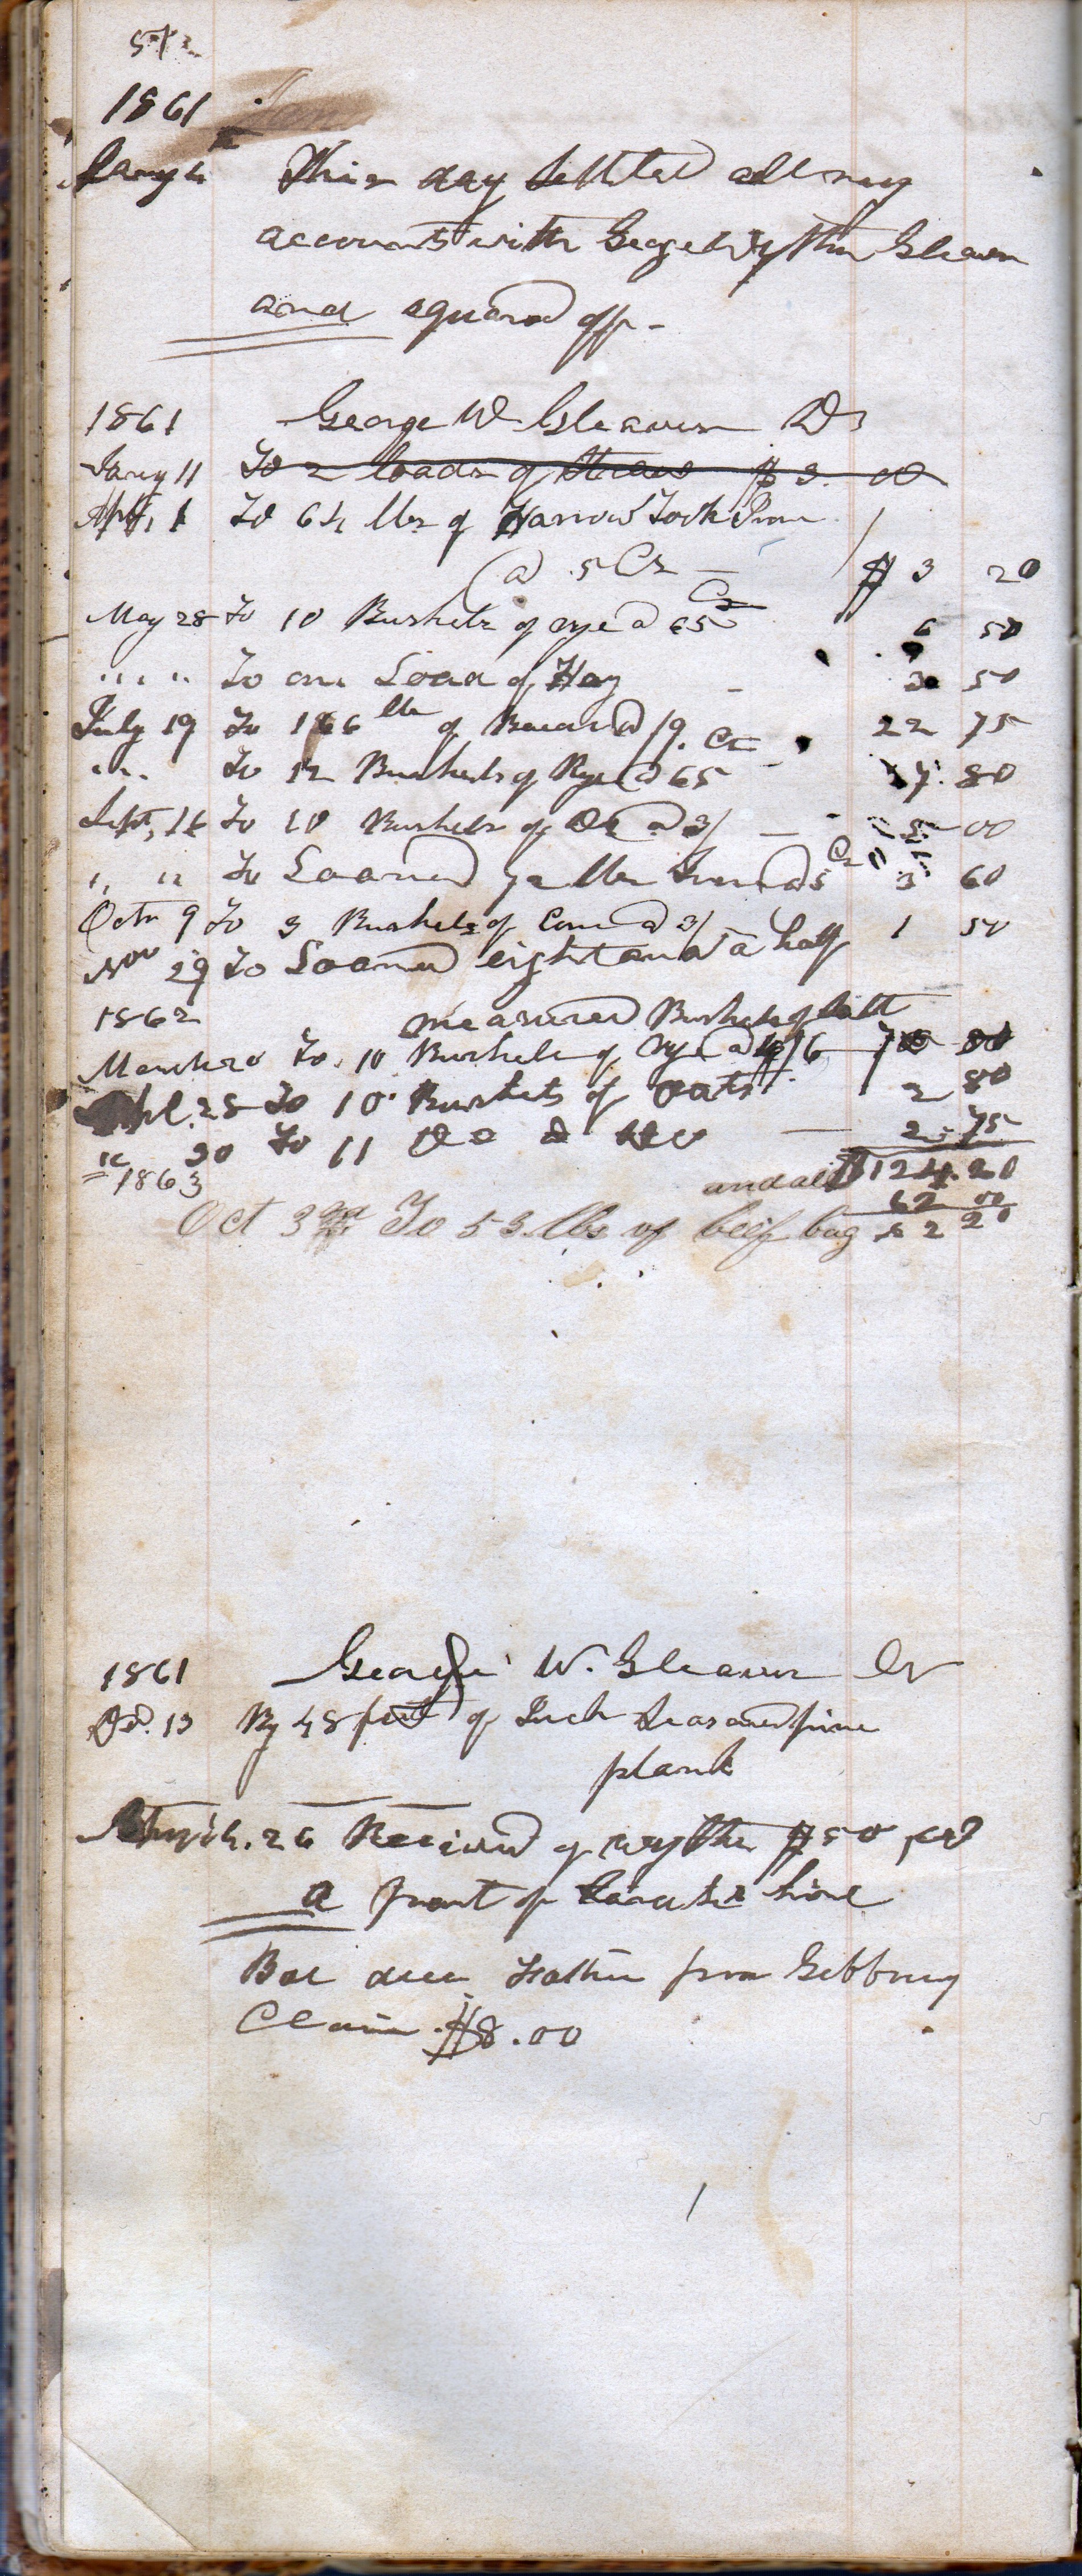 572
1861
Jany 4 This day Settled all my
accounts with George Wythe Gleaven
and squared off -
1861 George W Gleaven Dr
Jany 11 To 2 loads of Straw $ 3. 00
Apr, 1 To 64 lbs of Harrow Tooth Iron
@ 5 Cts — $ 3 20
May 28 To 10 Bushels of rye @ 65 Cts 6 50
" " " To one Load of Hay - 3 50
July 19 To 166 lbs of Bacon @ /9. Cts 22 75
" " To 12 Bushels of Rye @ 65 7. 80
Sept, 14 To 10 Bushels of Do @ 3/ — 5 00
" " To Loaned 72 lbs Iron @ 5 Cts 3 60
Octr 9 To 3 Bushels of Corn @ 3/ 1 50
Nov 29 To Loaned eight and a half
1862 measured Bushels of Salt
March 20 To 10 Bushels of rye @ /6
Apl. 28 To 10 Bushels of oats 2 80
" 30 To 11 Do Do — 2 75
" 1863 $124.20
62 00
Oct 3rd To 53 lbs of beif bag 62 20
1861 George W. Gleaven Cr
13 By 48 feet of Inch Seasoned pine
plank
March. 26 Received of Wythe $50
a front of horse
Bal due Father from
Claim $8.00